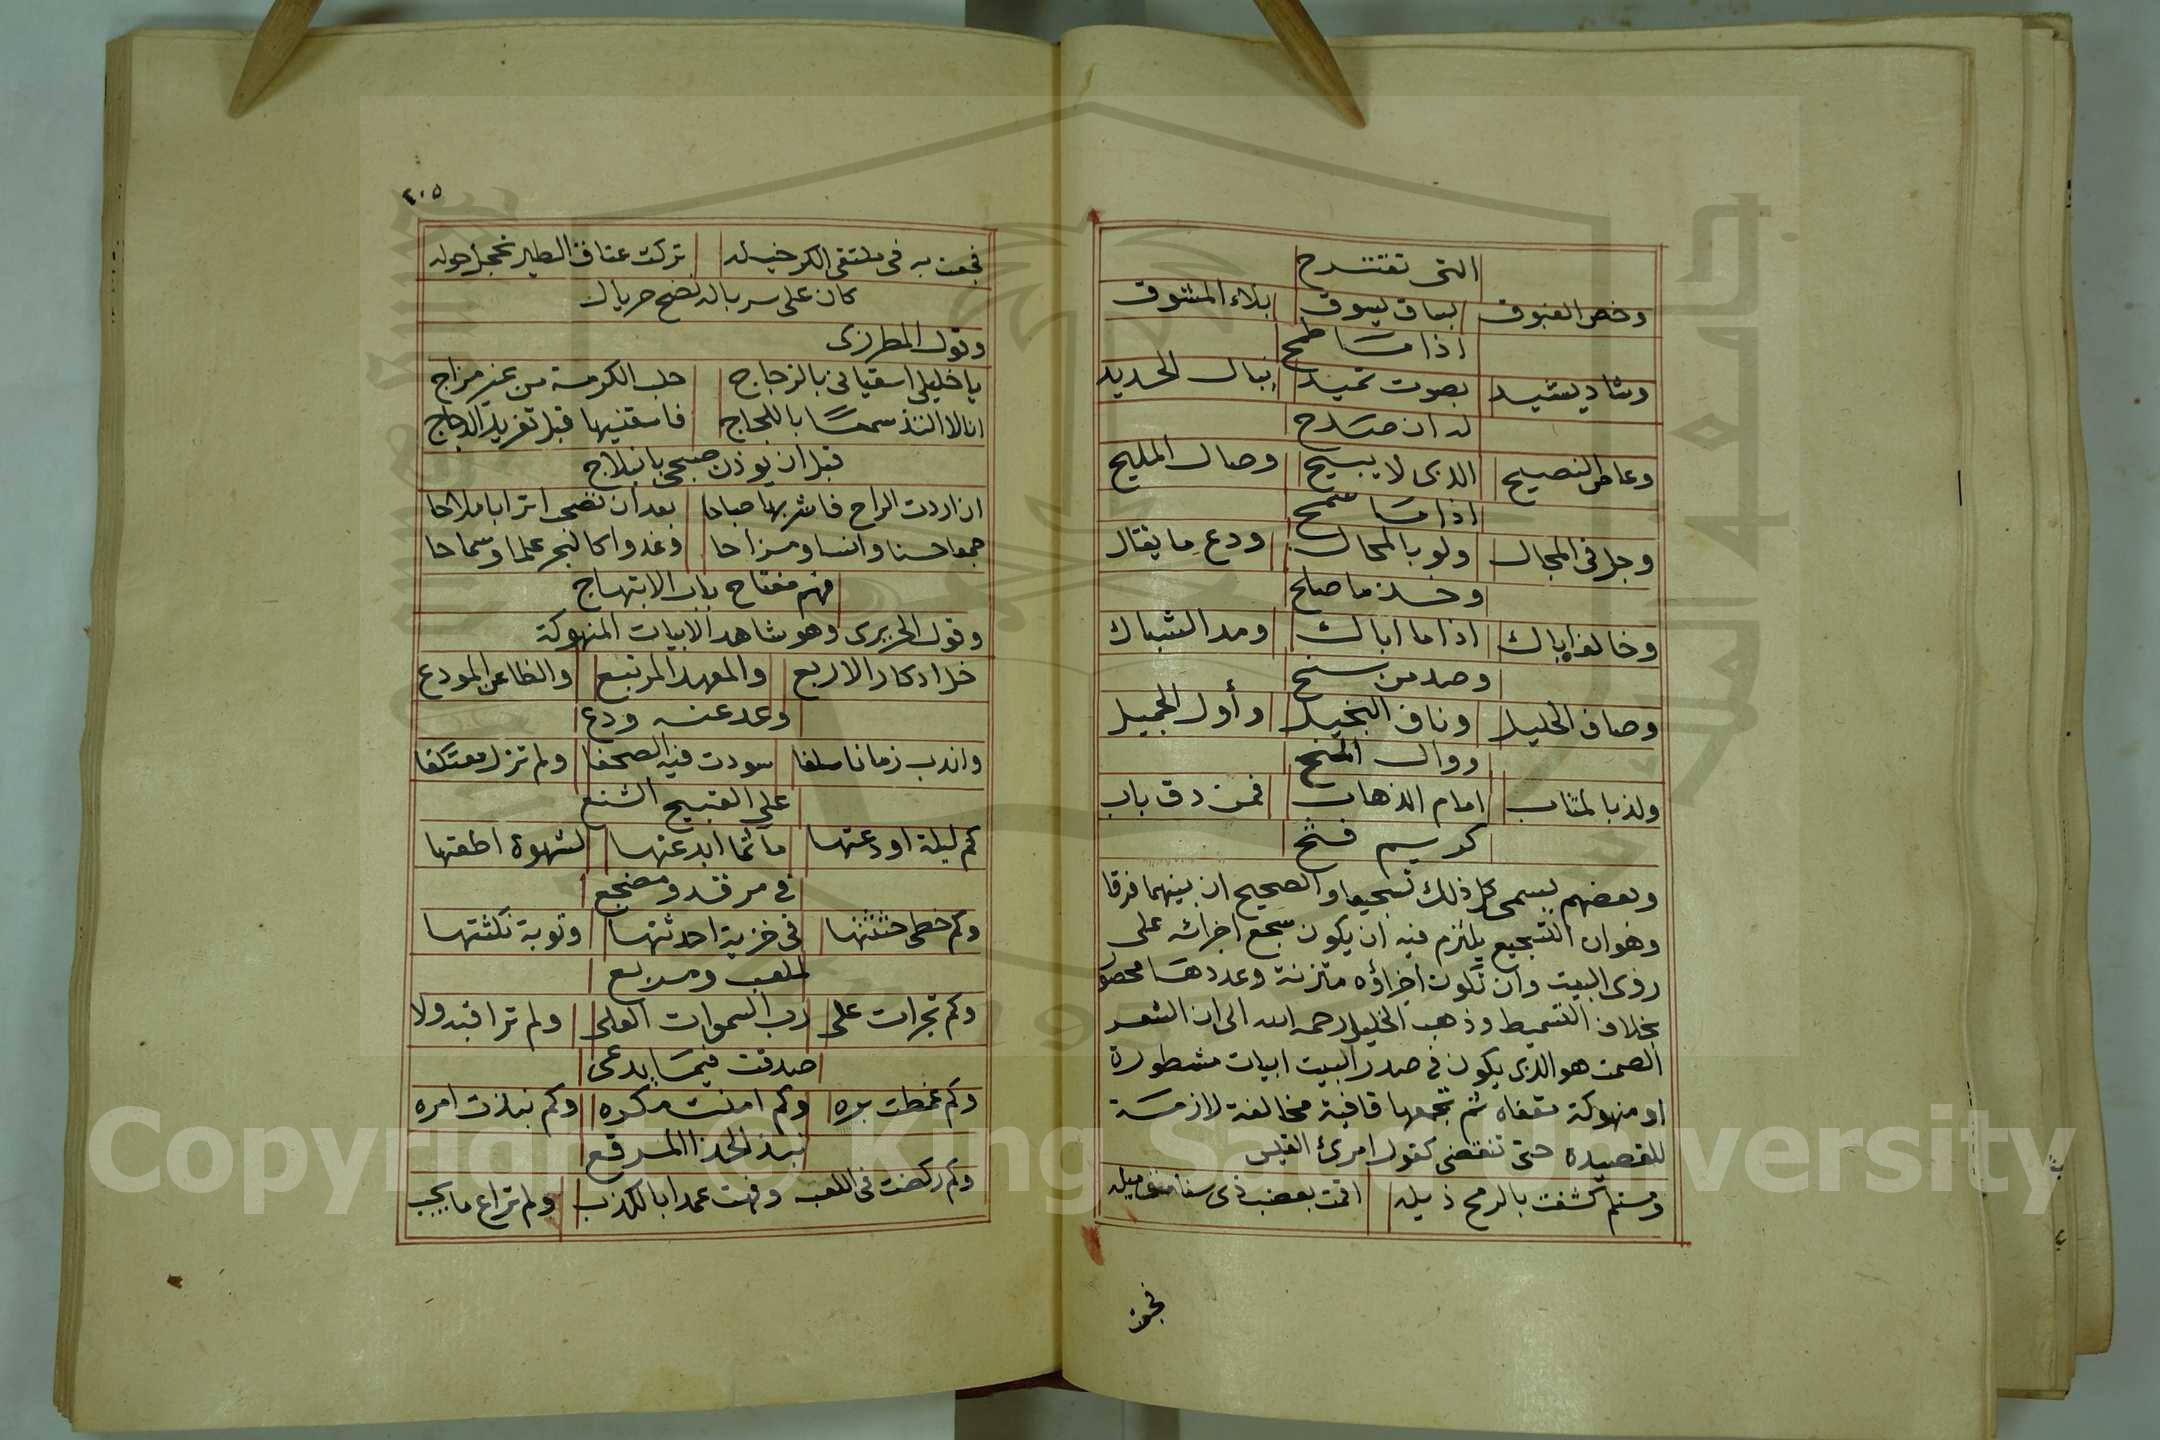 التى تقتدح
وخص الغبوق بساق يسوق بلاء المشوق
اذا ما طمح
وشاد يشيد بصوت تميد جبال الحديد
له ان صدح
وعاص النصيح الذى لا يبيح وصال المليح
اذا ما سمح
وجل فى المجال ولو بالمحال ودع ما يقال
وخذ ما صلح
وخالف اباك اذا ما اباك ومد الشباك
وصد من سنح
وصاف الخليل وناف البخيل وأول الجميل
ووال المنح
ولذ بالمتاب امام الذهاب فمن دق باب
كريم فتح
وبعضهم يسمى كل ذلك تسجيعا والصحيح ان بينهما فرقا
وهو ان التسجيع يلتزم فيه ان يكون سجع اجزائه على
روى البيت وان تكون اجزاؤه متزنة وعددها محصو
بخلاف التسميط وذهب الخليل رحمه الله الى ان الشعر
المسمط هو الذى يكون فى صدر البيت ابيات مشطورة
او منهوكة مقفاه ثم تجمعها قافية مخالفة لازمة
للقصيدة حتى تنقضى كقول امرئ القيس
ومستلئم كشفت بالرمح ذيله اقمت بعضب ذى سفاسق ميله
فجعت
٤٠٥
فجعت به فى ملتقى الكر خيله تركت عتاق الطير تحجل حوله
كان على سرباله نضح جريال
وقول المطرزى
يا خليلى اسقيانى بالزجاج حلب الكرمة من غير مزاج
انا لا التذ سمعا باللجاج فاسقنيها قبل تغريد الدجاج
قبل ان يوذن صبحى بانبلاج
ان اردت الراح فاشربها صباحا بعد ان تضحى اترابا ملاحا
جمعوا حسنا وانسا ومزاحا وغدوا كالبحر علما وسماحا
فهم مفتاح باب الابتهاج
وقول الحريرى وهو شاهد الابيات المنهوكة
خل ادكار الاربع والمعهد المرتبع والظاعن المودع
وعد عنه ودع
واندب زمانا سلفا سودت فيه الصحفا ولم تزل معتكفا
على القبيح الشنع
كم ليلة اودعتها مآثما ابدعتها لشهوة اطعتها
فى مرقد ومضجع
وكم خطى حثثتها فى خزية احدثتها وتوبة نكثتها
لملعب ومربع
وكم تجرات على رب السموات العلى ولم تراقبه ولا
صدقت فيما يدعى
وكم غمطت بره وكم امنت مكره وكم نبذت امره
نبذ الحذا المرقع
وكم ركضت فى اللعب وفهت عمدا بالكذب ولم تراع ما يجب